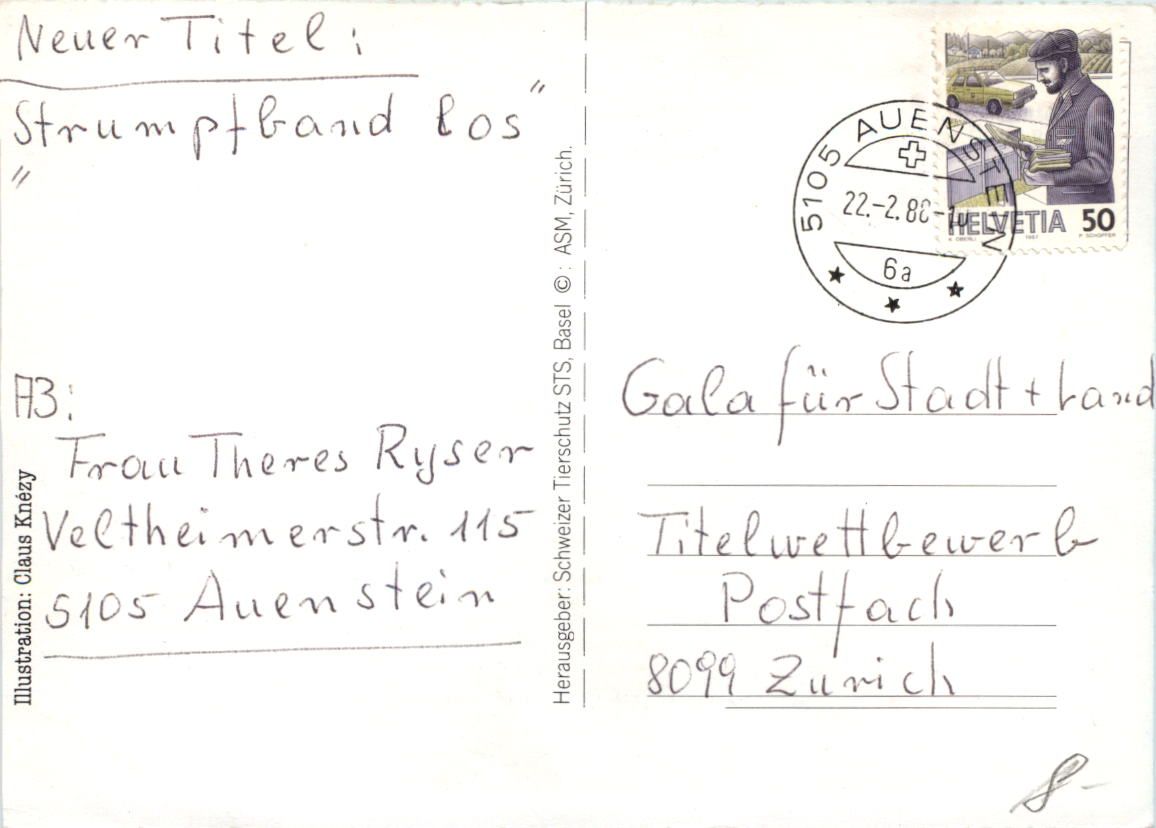 Neuer Titel:
„Strumpfband los"
A3:
Frau Theres Ryser
Veltheimerstr. 115
5105 Auenstein
Illustration: Claus Knézy
Herausgeber: Schweizer Tierschutz STS, Basel ©: ASM, Zürich.
5105 AUENSTEIN
22.-2.88-1
6a
HELVETIA 50
K. OBERLI 1987 P. SCHOPFER
Gala für Stadt + Land
Titelwettbewerb
Postfach
8099 Zürich
8-